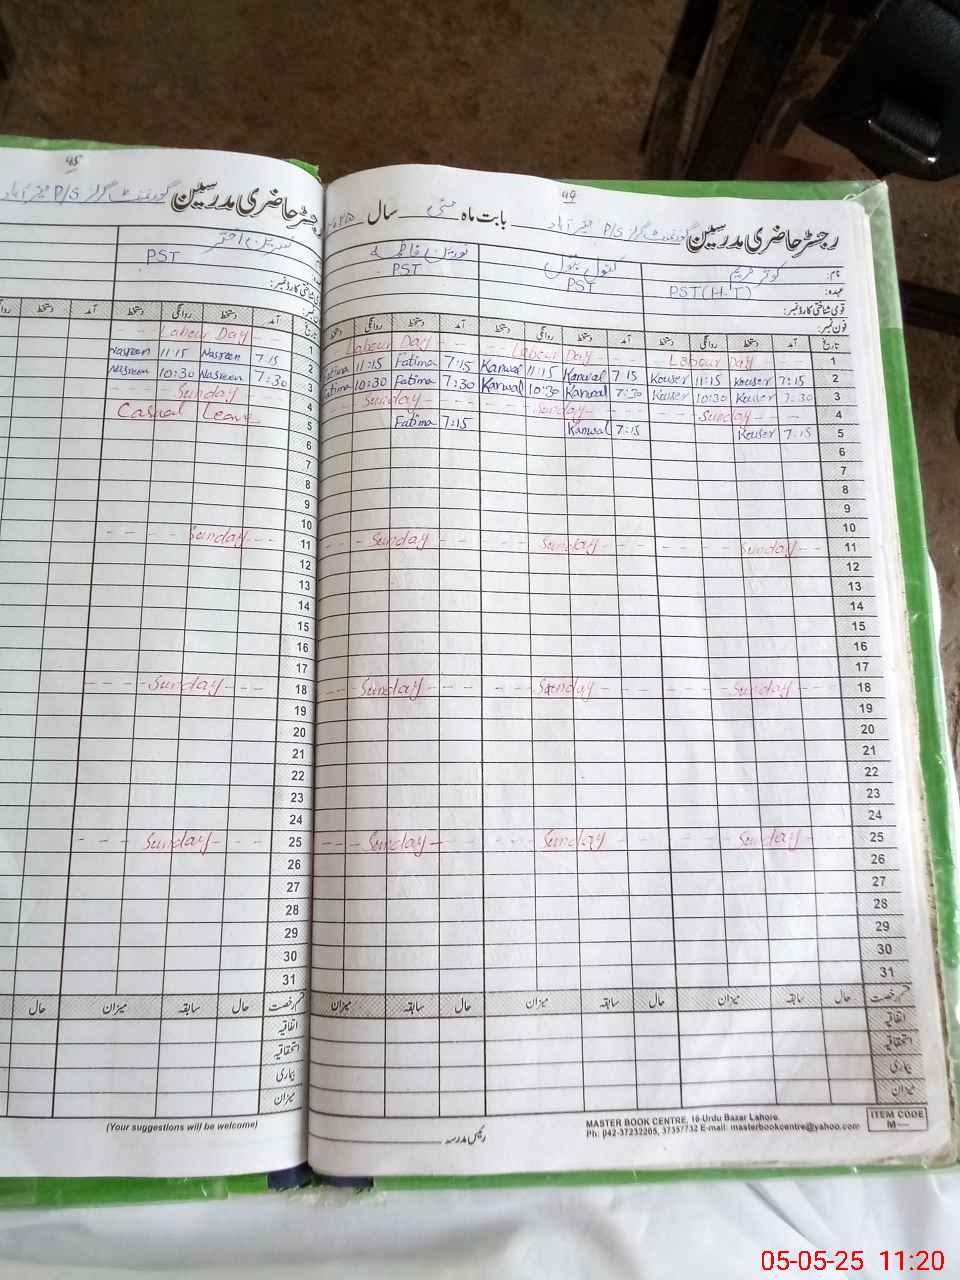 49
رجسٹر حاضری مدرسین گورنمنٹ گرلز P/S بابت ماہ مئی سال
نام: کوثر مریم کنول بتول نورین فاطمہ
عہدہ: PST(H-T) PST PST
قومی شناختی کارڈ نمبر:
فون نمبر:
تاریخ آمد دستخط روانگی دستخط آمد دستخط روانگی دستخط آمد دستخط روانگی دستخط
1 Labour Day Labour Day Labour Day
2 7:15 Kouser 11:15 Kouser 7:15 Kanwal 11:15 Kanwal 7:15 Fatima 11:15 Fatima
3 7:30 Kouser 10:30 Kouser 7:30 Kanwal 10:30 Kanwal 7:30 Fatima 10:30 Fatima
4 Sunday Sunday Sunday
5 7:15 Kouser 7:15 Kanwal 7:15 Fatima
6
7
8
9
10
11 Sunday Sunday Sunday
12
13
14
15
16
17
18 Sunday Sunday Sunday
19
20
21
22
23
24
25 Sunday Sunday Sunday
26
27
28
29
30
31
قسم رخصت حال سابقہ میزان حال سابقہ میزان حال سابقہ میزان
اتفاقیہ
استحقاقیہ
بیماری
میزان
رئیس مدرسہ
MASTER BOOK CENTRE, 16-Urdu Bazar Lahore.
Ph: 042-37232205, 37357732 E-mail: masterbookcentre@yahoo.com
ITEM CODE
M—
45
رجسٹر حاضری مدرسین گورنمنٹ گرلز P/S
نسرین اختر
PST
تاریخ آمد دستخط روانگی دستخط آمد دستخط
1 Labour Day
2 7:15 Nasreen 11:15 Nasreen
3 7:30 Nasreen 10:30 Nasreen
4 Sunday
5 Casual Leave
6
7
8
9
10
11 Sunday
12
13
14
15
16
17
18 Sunday
19
20
21
22
23
24
25 Sunday
26
27
28
29
30
31
قسم رخصت حال سابقہ میزان حال
اتفاقیہ
استحقاقیہ
بیماری
میزان
(Your suggestions will be welcome)
05-05-25 11:20